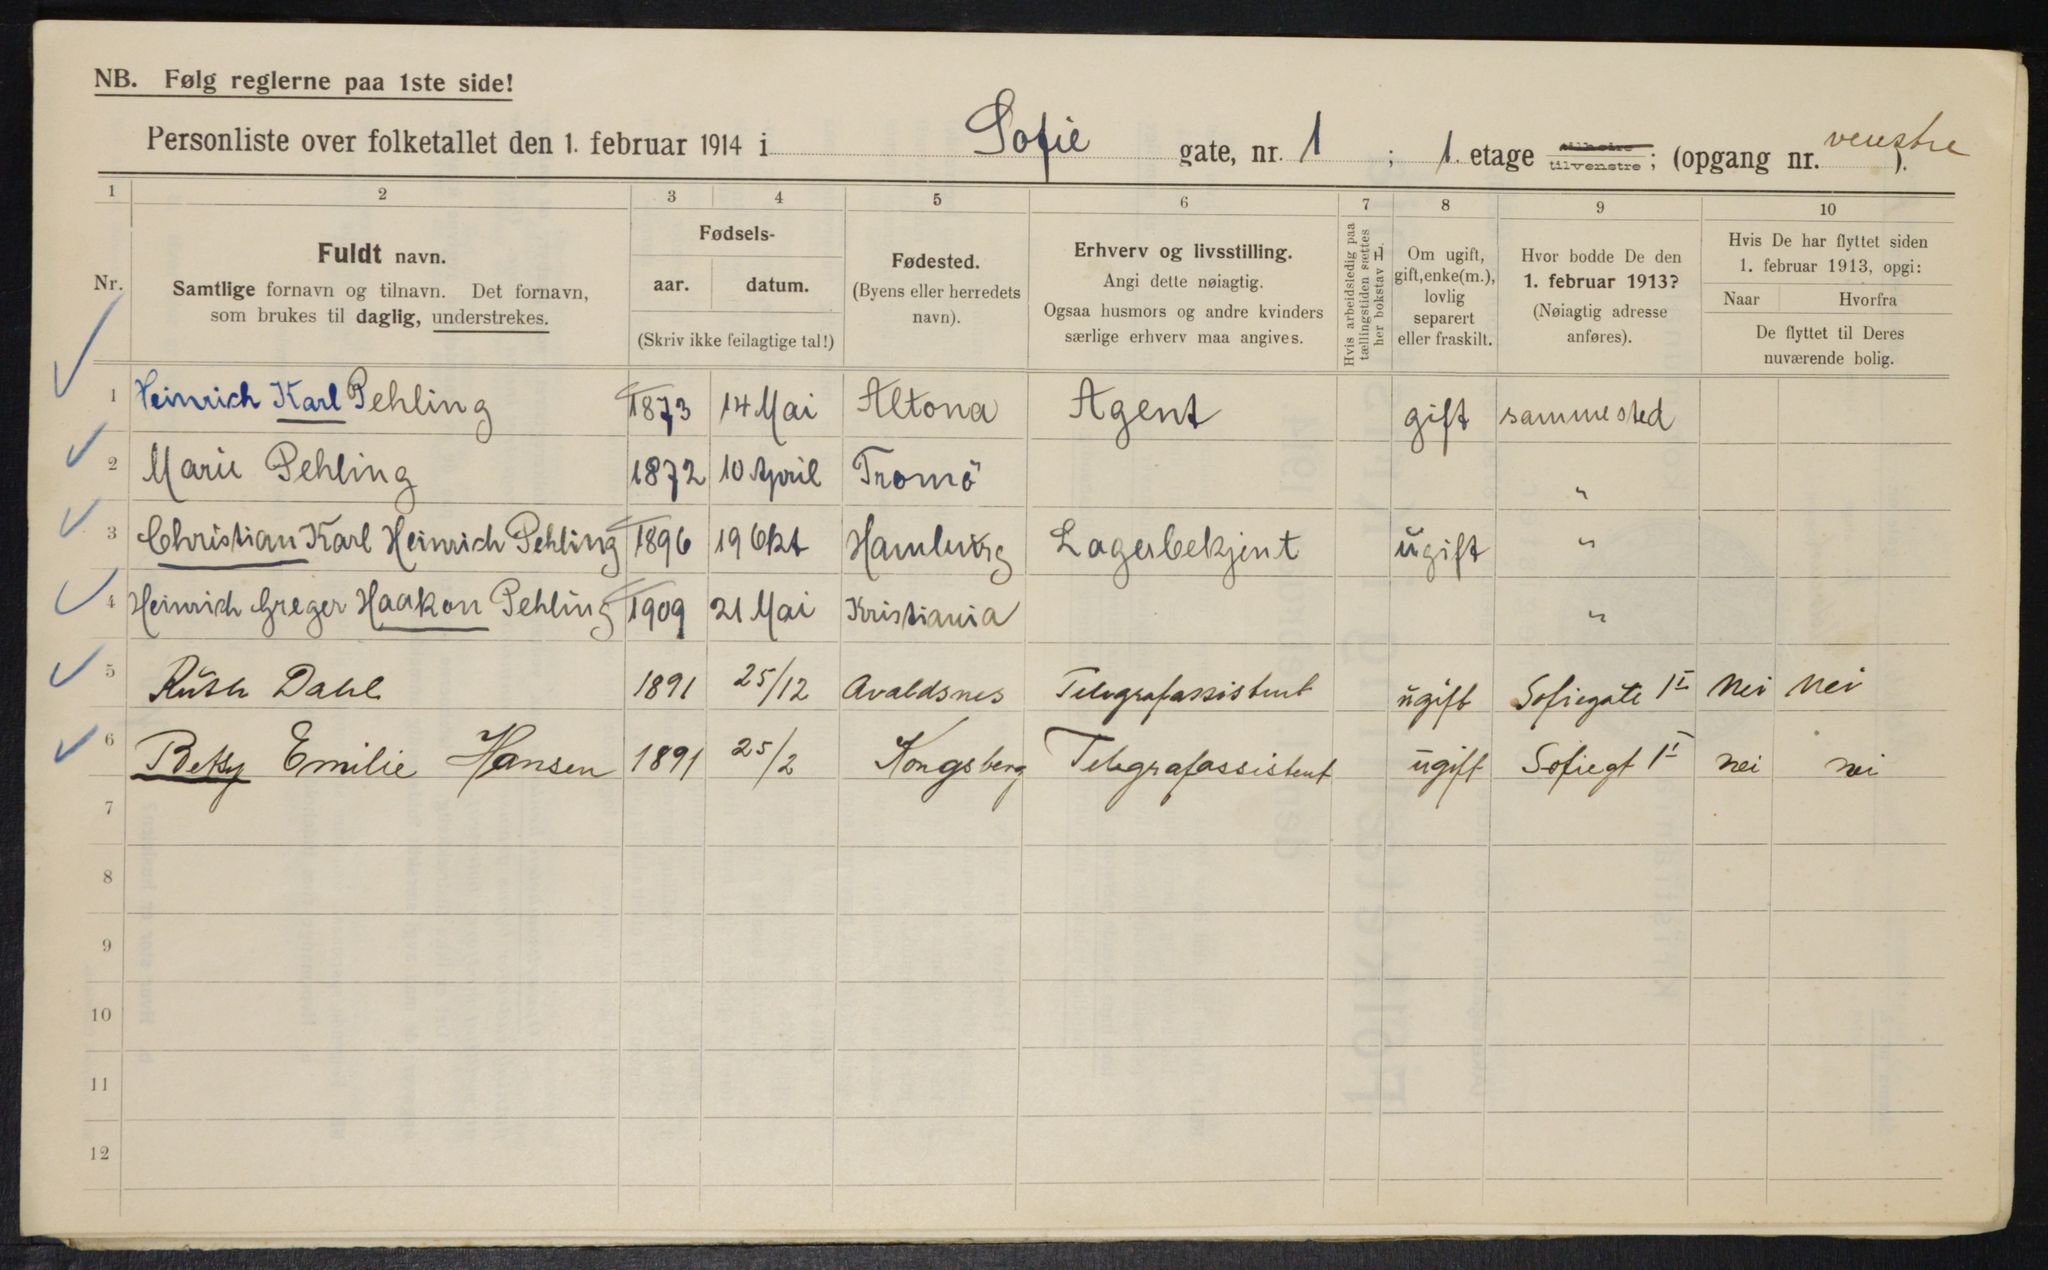 NB. Følg reglerne paa 1ste side!
Personliste over folketallet den 1. februar 1914 i Sofie gate, nr. 1 ; 1. etage tilhøire tilvenstre; (opgang nr. venstre ).
1 2 3 4 5 6 7 8 9 10
Nr.
Fuldt navn.
Samtlige fornavn og tilnavn. Det fornavn,
som brukes til daglig, understrekes.
Fødsels-
aar. datum.
(Skriv ikke feilagtige tal!)
Fødested.
(Byens eller herredets
navn).
Erhverv og livsstilling.
Angi dette nøiagtig.
Ogsaa husmors og andre kvinders
særlige erhverv maa angives.
Hvis arbeidsledig paa
tællingstiden sættes
her bokstav L.
Om ugift,
gift, enke(m.),
lovlig
separert
eller fraskilt.
Hvor bodde De den
1. februar 1913?
(Nøiagtig adresse
anføres).
Hvis De har flyttet siden
1. februar 1913, opgi:
Naar Hvorfra
De flyttet til Deres
nuværende bolig.
1 Heinrich Karl Pehling 1873 14 Mai Altona Agent gift sammested
2 Marie Pehling 1872 10 April Tromö "
3 Christian Karl Heinrich Pehling 1896 19 Okt Hamburg Lagerbekjent ugift "
4 Heinrich Greger Haakon Pehling 1909 21 Mai Kristiania "
5 Ruth Dahl 1891 25/12 Avaldsnes Telegrafassistent ugift Sofiegate 1 I Nei Nei
6 Betsy Emilie Hansen 1891 25/2 Kongsberg Telegrafassistent ugift Sofiegt 1 I nei nei
7
8
9
10
11
12